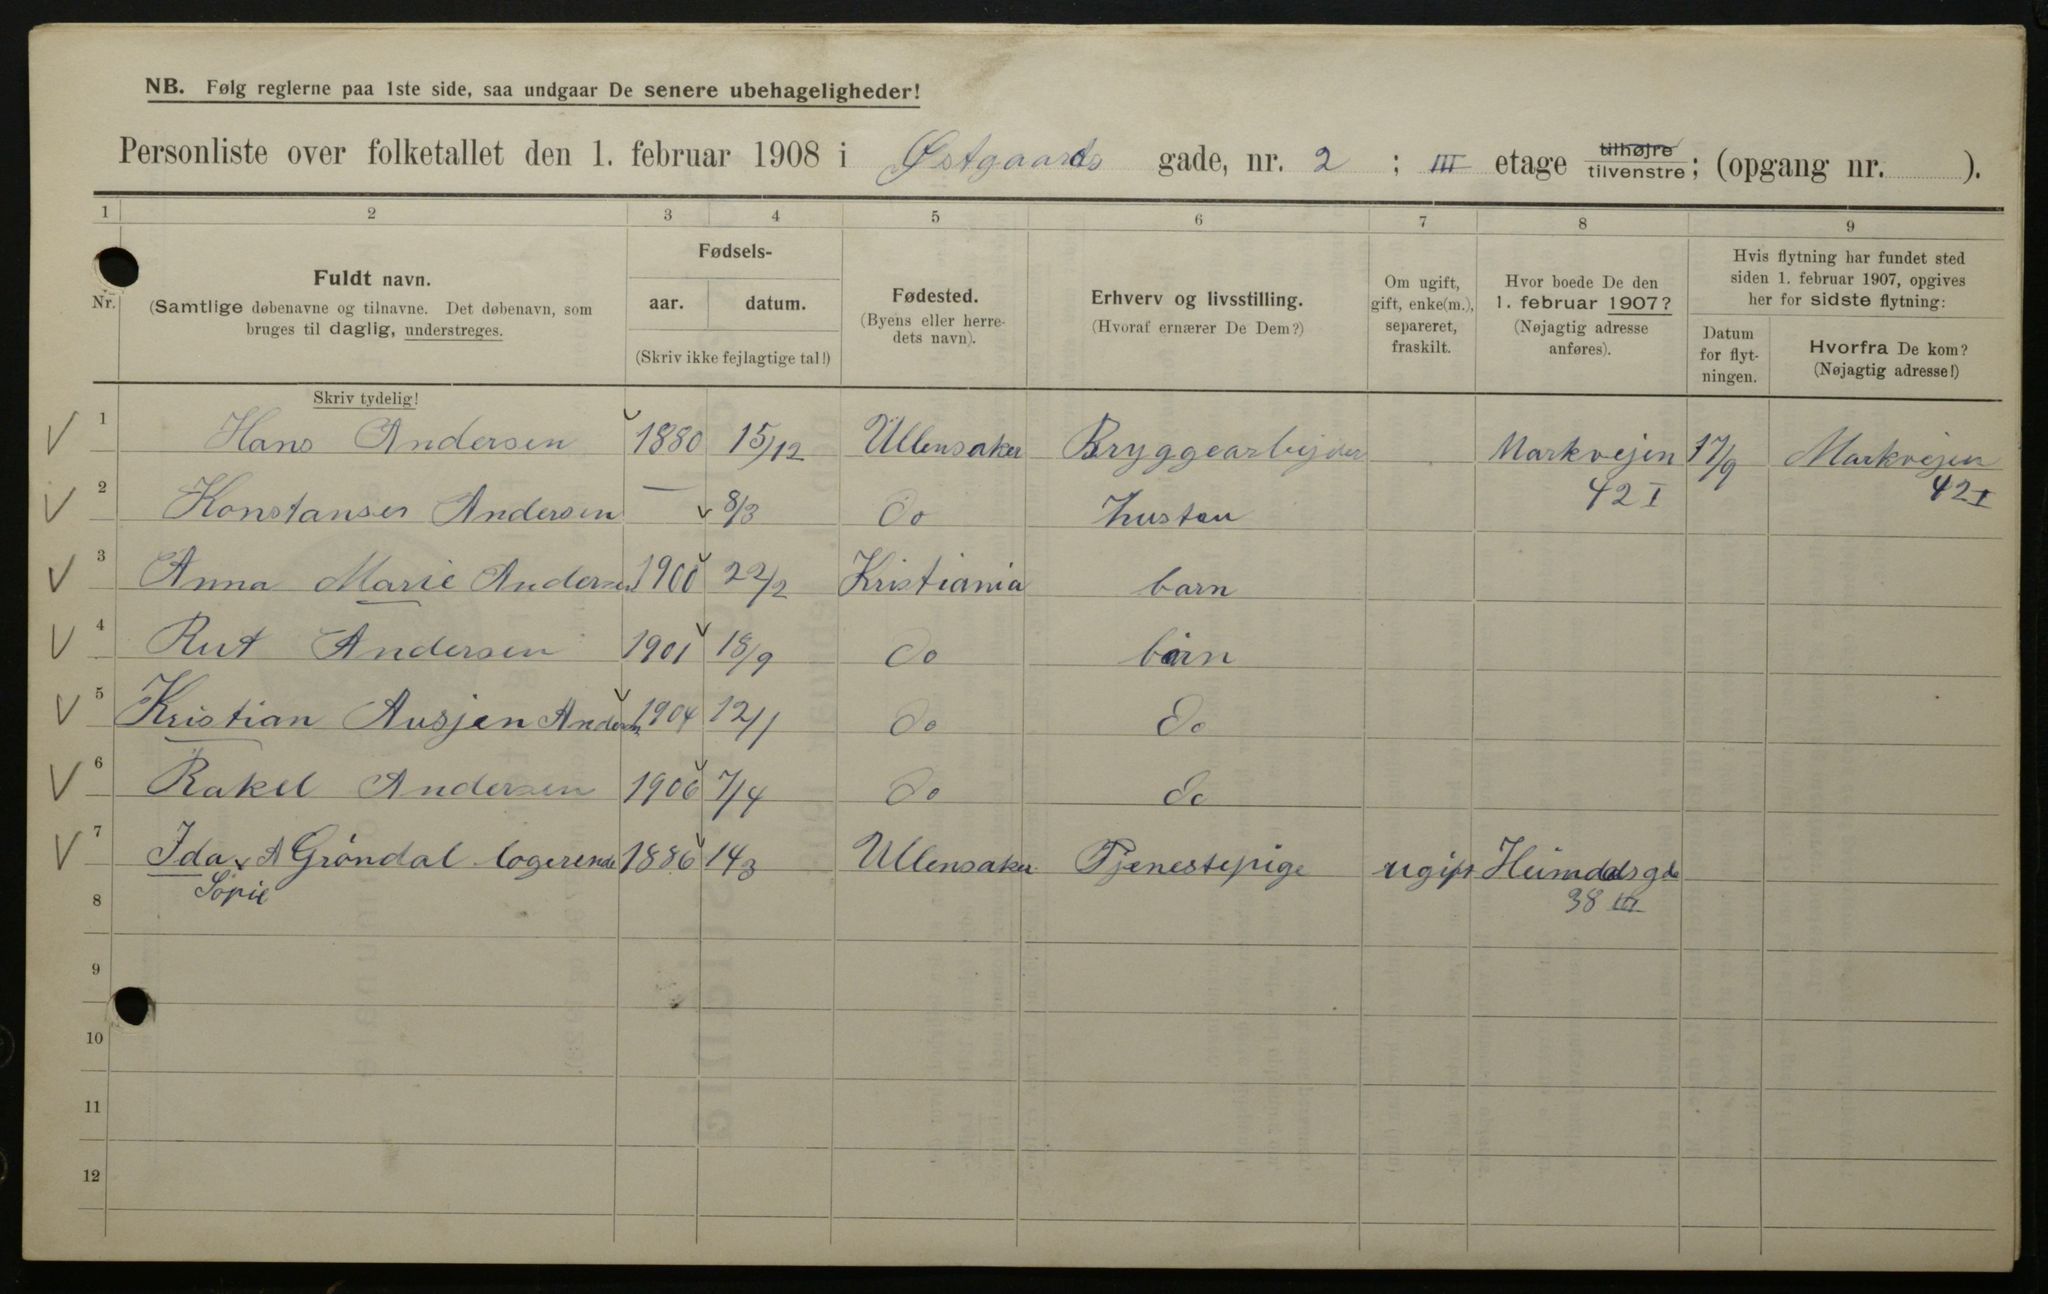 NB. Følg reglerne paa 1ste side, saa undgaar De senere ubehageligheder!
Personliste over folketallet den 1. februar 1908 i Østgaards gade, nr. 2 ; III etage tilhøjre tilvenstre; (opgang nr. ).
1 2 3 4 5 6 7 8 9
Nr.
Fuldt navn.
(Samtlige døbenavne og tilnavne. Det døbenavn, som
bruges til daglig, understreges.
Skriv tydelig!
Fødsels-
aar. datum.
(Skriv ikke fejlagtige tal!)
Fødested.
(Byens eller herre-
dets navn).
Erhverv og livsstilling.
(Hvoraf ernærer De Dem?)
Om ugift,
gift, enke(m.),
separeret,
fraskilt.
Hvor boede De den
1. februar 1907?
(Nøjagtig adresse
anføres).
Hvis flytning har fundet sted
siden 1. februar 1907, opgives
her for sidste flytning:
Datum
for flyt-
ningen.
Hvorfra De kom?
(Nøjagtig adresse!)
1 Hans Andersen 1880 15/12 Ullensaker Bryggearbejder Markvejen 17/9 Markvejen
42 I 42 I
2 Konstanser Andersen — 8/3 Do hustau
3 Anna Marie Andersen 1900 22/2 Kristiania barn
4 Rut Andersen 1901 18/9 Do barn
5 Kristian Ausjen Andersen 1904 12/1 Do Do
6 Rakel Andersen 1906 7/4 Do Do
7 Ida A Grøndal logerende 1886 14/3 Ullensaker Tjenestepige ugift Heimdalsgda
Sofie 38 III
8
9
10
11
12